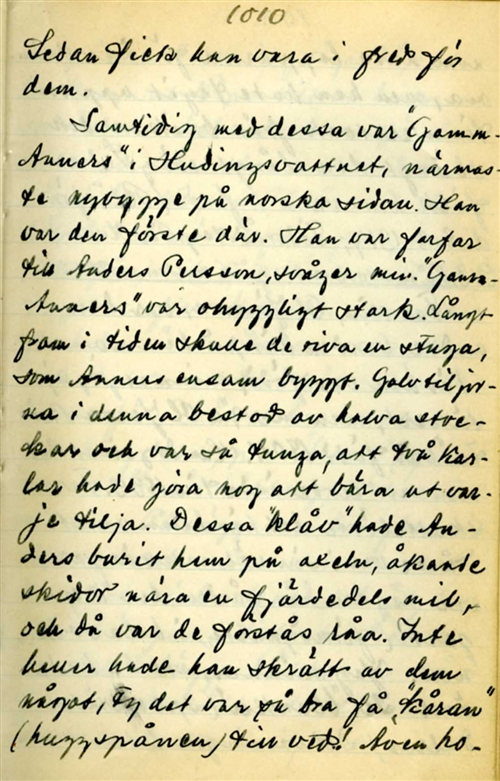 1010
Sedan fick han vara i fred för
dem.
Samtidig med dessa var "Gamm-
Anners" i Hudingsvattnet, närmas-
te nybygge på norska sidan. Han
var den förste där. Han var farfar
till Anders Persson, svåger min. "Gamm-
Anners" var ohyggligt stark. Långt
fram i tiden skulle de riva en stuga,
som Anners ensam byggt. Golvtiljor-
na i denna bestod av halva stoc-
kar och var så tunga, att två kar-
lar hade göra nog att bära ut var-
je tilja. Dessa "klåv" hade An-
ders burit hem på axeln, åkande
skidor nära en fjärdedels mil,
och då var de förstås råa. Inte
heller hade han skrätt av dem
något, ty det var så bra få "kåran"
(huggspånen) till ved! Även ho-